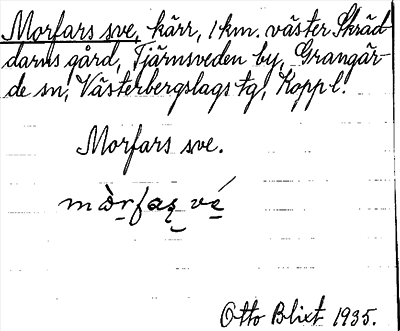 Morfars sve, kärr, 1 km. väster Skräd
darns gård, Tjärnsveden by, Grangär-
de sn, Västerbergslags tg, Kopp l.
Morfars sve.
Otto Blixt 1935.